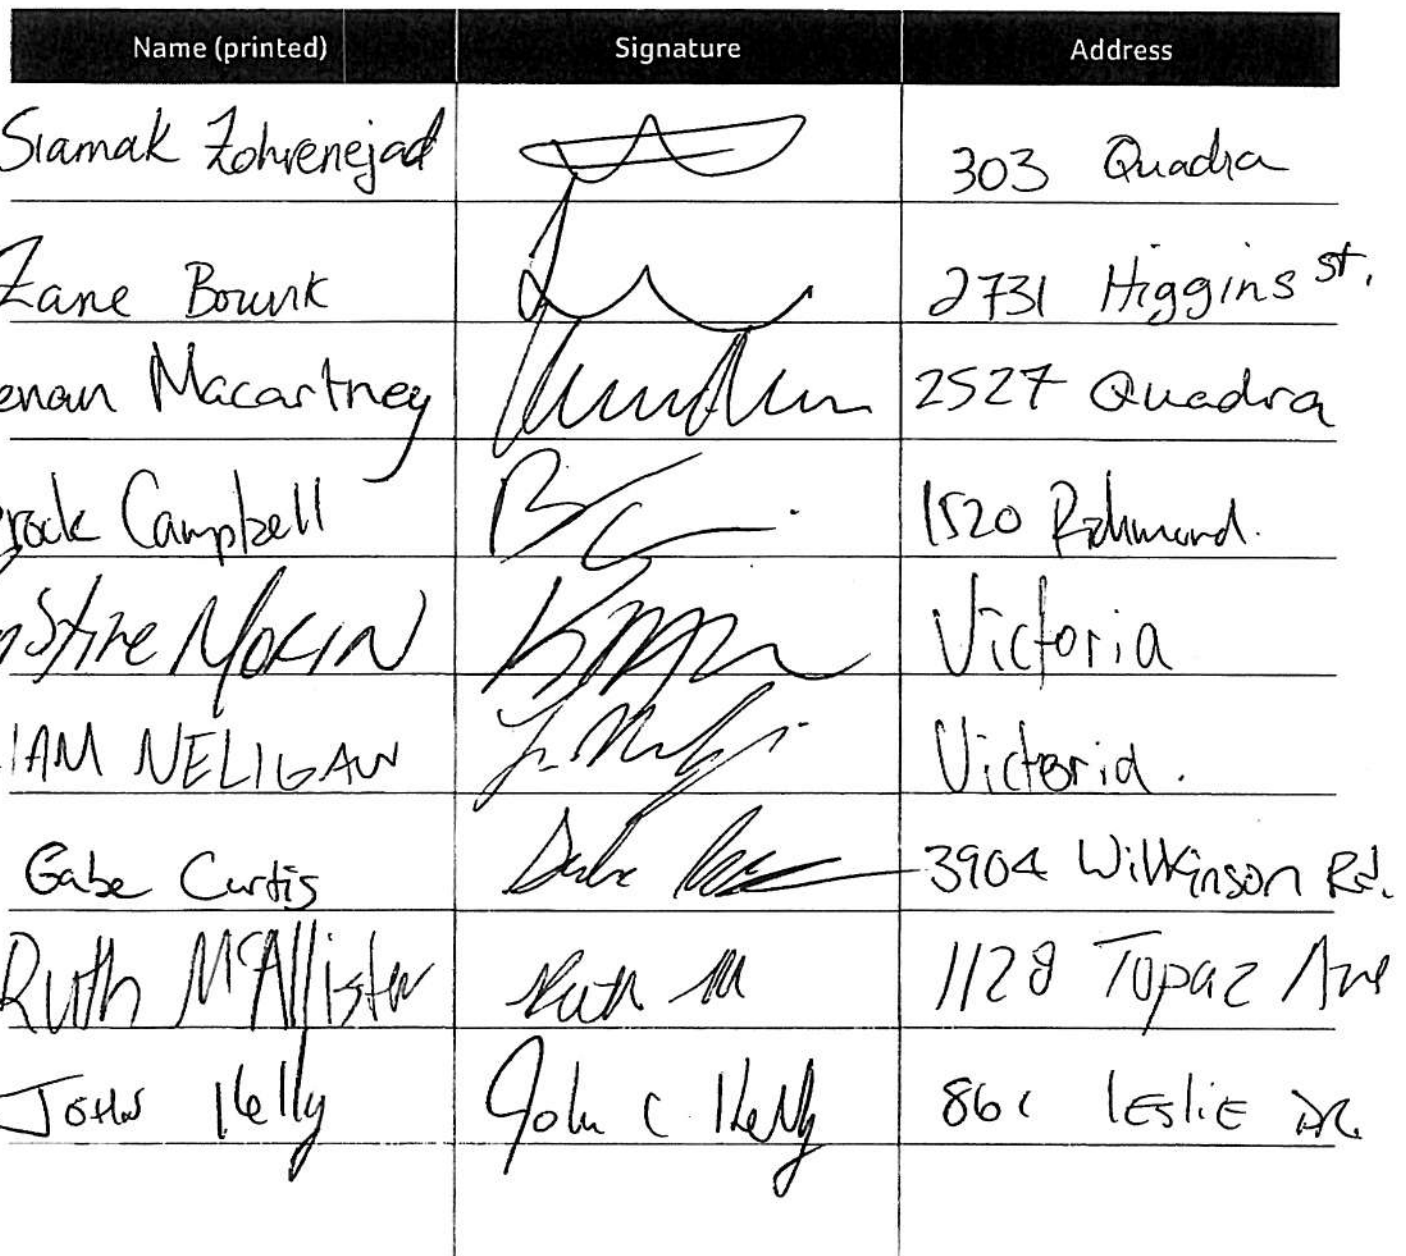 Name (printed) Signature Address
Siamak Zohrenejad 303 Quadra
Zane 2731 Higgins St.
enan Macartney 2527 Quadra
rock Campbell BC 1520 Richmond.
Victoria
IAM NELIGAN Victoria.
Gabe Curtis 3904 Wilkinson Rd.
Ruth McAllister Ruth M 1128 Topaz Ave
John Kelly John C Kelly Leslie DR.